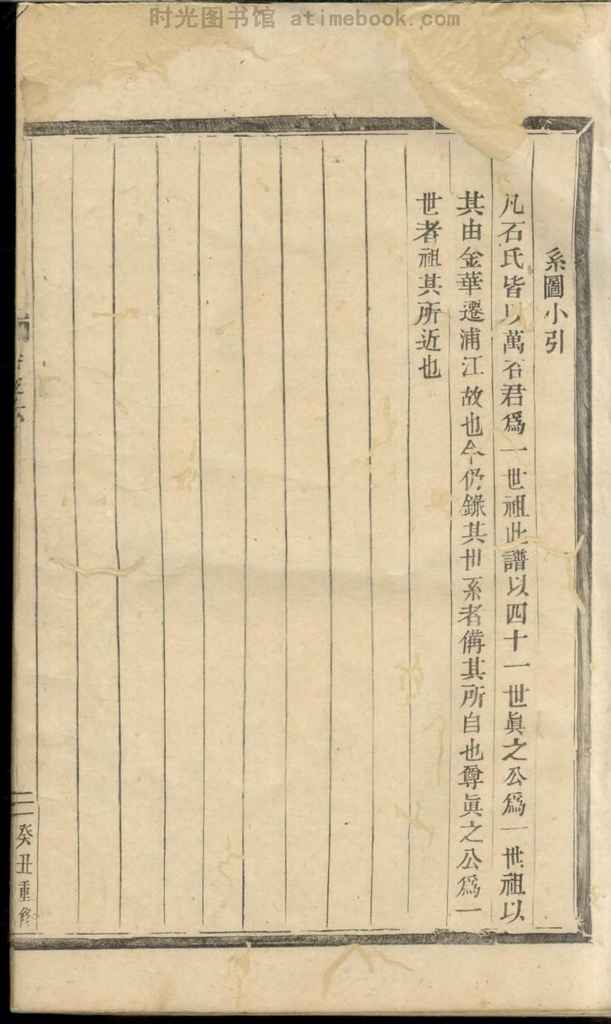 时光图书馆 atimebook.com
系圖小引
凡石氏皆以萬石君爲一世祖此譜以四十一世眞之公爲一世祖以
其由金華遷浦江故也今仍錄其世系者備其所自也尊眞之公爲一
世者祖其所近也
癸丑重修